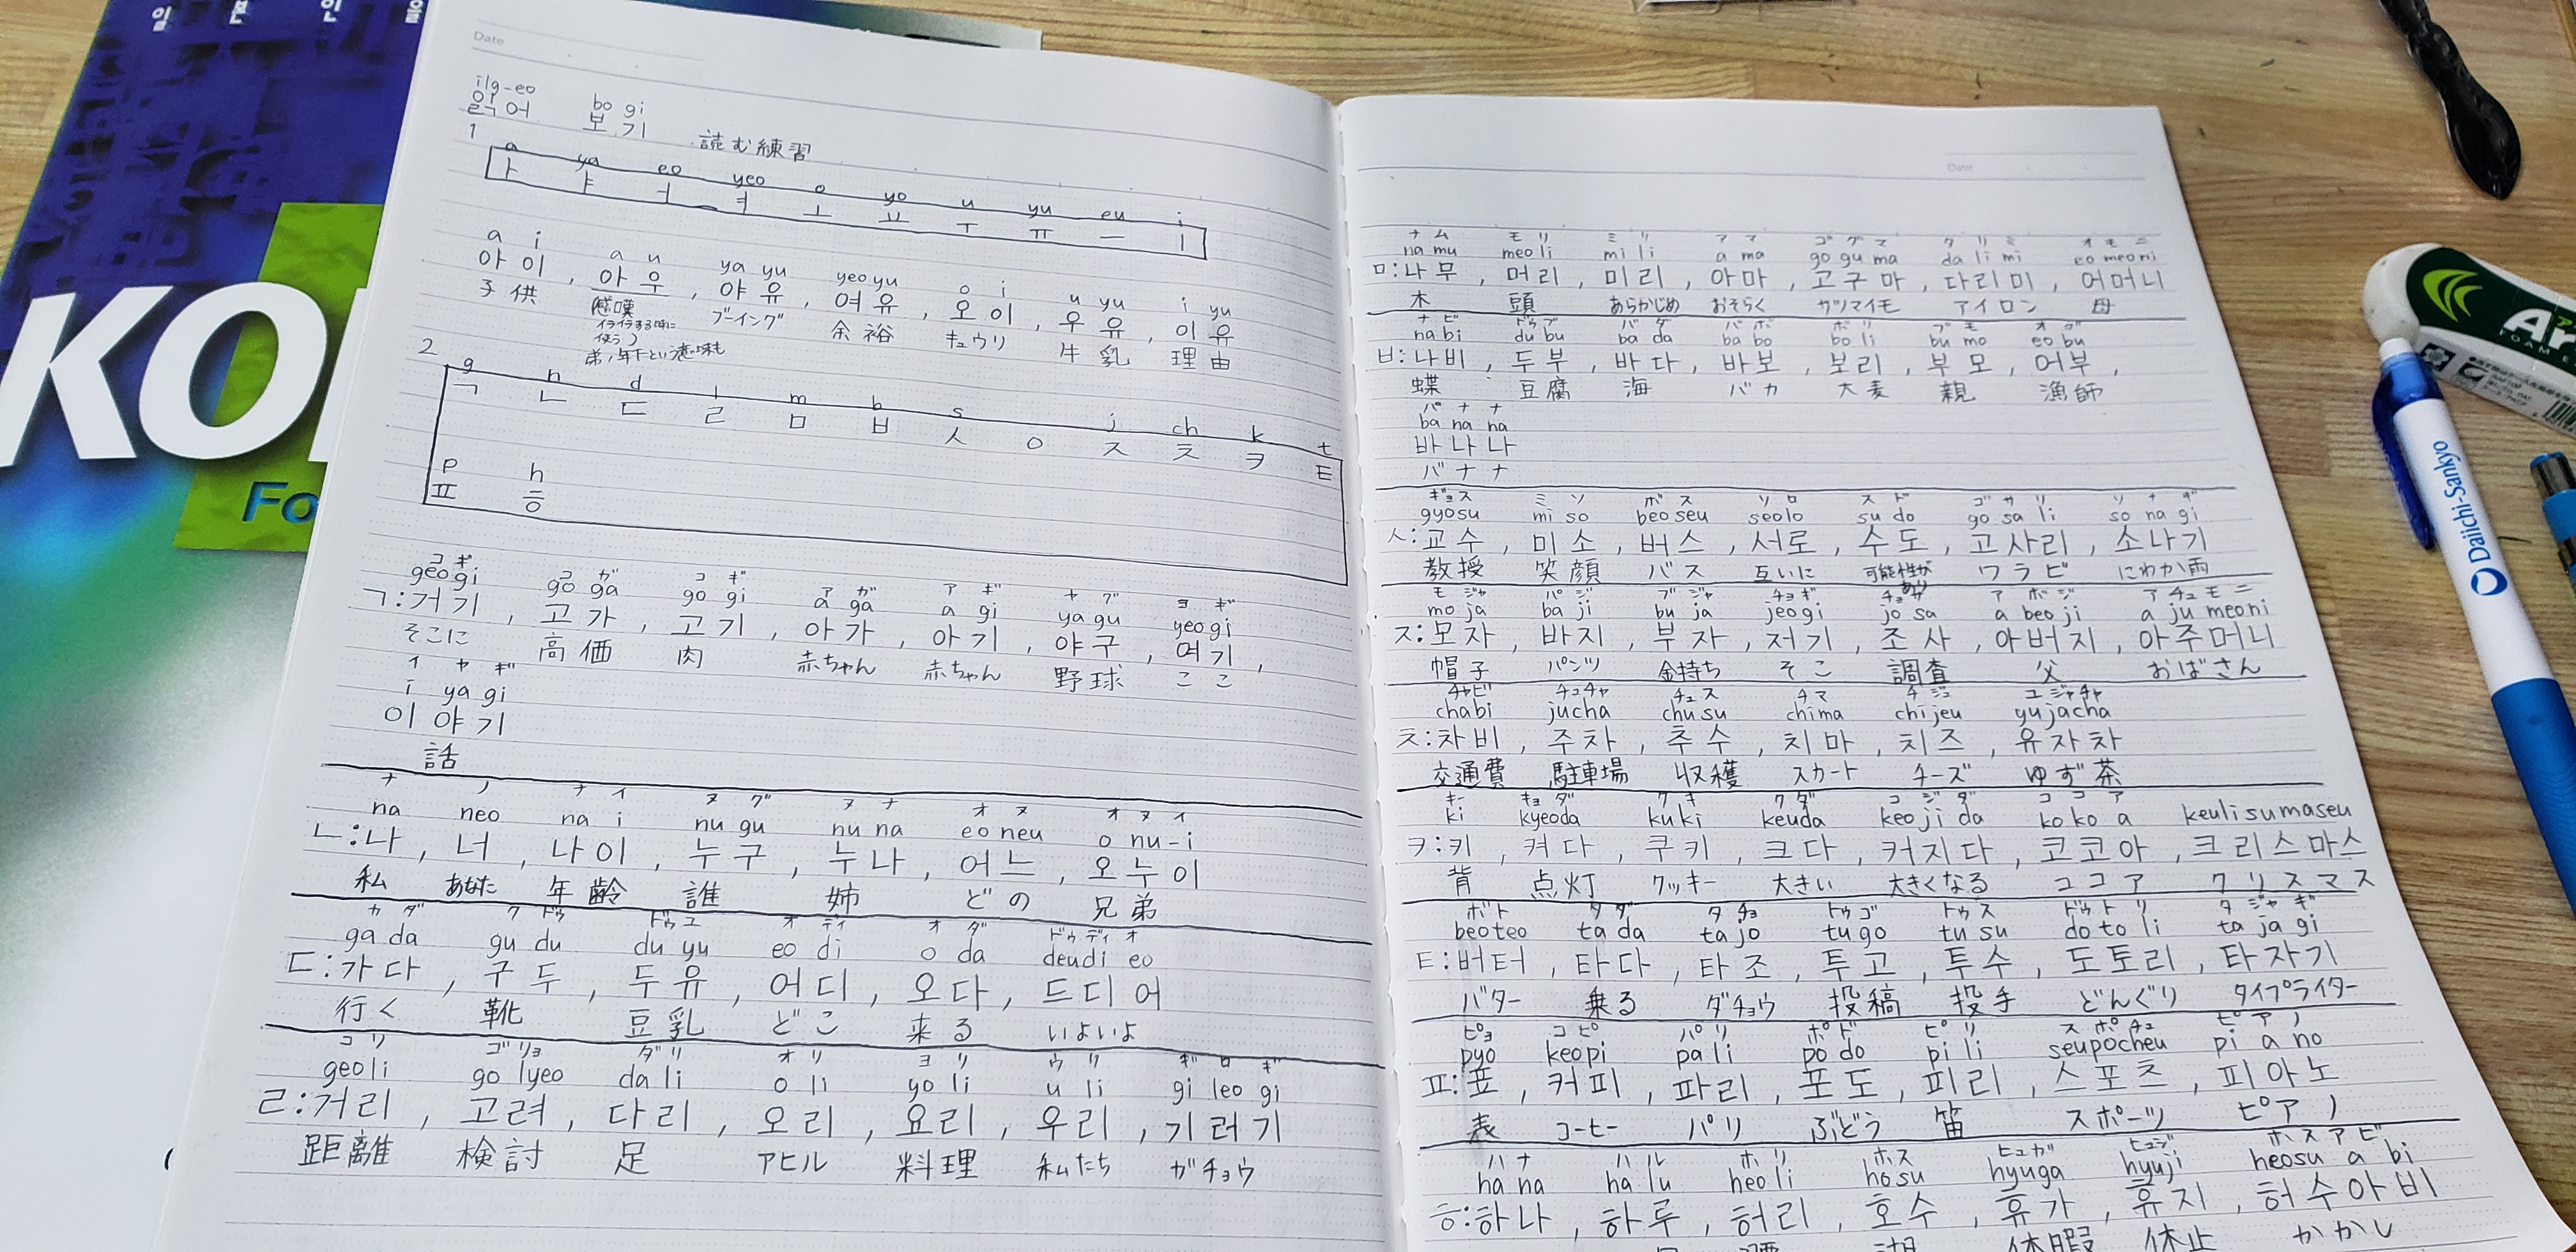 일 본 인 을
KO
Fo
Date
ilg-eo bo gi
읽어 보기 読む練習
1
a ya eo yeo o yo u yu eu i
ㅏ ㅑ ㅓ ㅕ ㅗ ㅛ ㅜ ㅠ ㅡ ㅣ
a i a u ya yu yeo yu o i u yu i yu
아이, 아우, 야유, 여유, 오이, 우유, 이유
子供 感嘆 ブーイング 余裕 キュウリ 牛乳 理由
イライラする時に
使う
弟,年下という意味も
2
g n d l m b s j ch k t
ㄱ ㄴ ㄷ ㄹ ㅁ ㅂ ㅅ ㅇ ㅈ ㅊ ㅋ ㅌ
p h
ㅍ ㅎ
コ ギ コ ガ コ ギ ア ガ ア ギ ヤ グ ヨ ギ
geo gi go ga go gi a ga a gi ya gu yeo gi
ㄱ:거기, 고가, 고기, 아가, 아기, 야구, 여기,
そこに 高価 肉 赤ちゃん 赤ちゃん 野球 ここ
イ ヤ ギ
i ya gi
이야기
話
ナ ノ ナ イ ヌ グ ヌ ナ オ ヌ オ ヌ イ
na neo na i nu gu nu na eo neu o nu-i
ㄴ:나, 너, 나이, 누구, 누나, 어느, 오누이
私 あなた 年齢 誰 姉 どの 兄弟
カ ダ ク ドゥ ドゥ ユ オ ディ オ ダ ドゥ ディ オ
ga da gu du du yu eo di o da deudi eo
ㄷ:가다, 구두, 두유, 어디, 오다, 드디어
行く 靴 豆乳 どこ 来る いよいよ
コ リ ゴ リョ ダ リ オ リ ヨ リ ウ リ ギ ロ ギ
geo li go lyeo da li o li yo li u li gi leo gi
ㄹ:거리, 고려, 다리, 오리, 요리, 우리, 기러기
距離 検討 足 アヒル 料理 私たち ガチョウ
Date
ナ ム モ リ ミ リ ア マ ゴ グ マ タ リ ミ オ モ ニ
na mu meo li mi li a ma go gu ma da li mi eo meo ni
ㅁ:나무, 머리, 미리, 아마, 고구마, 다리미, 어머니
木 頭 あらかじめ おそらく サツマイモ アイロン 母
ナ ビ ドゥ ブ バ ダ バ ボ ボ リ ブ モ オ ブ
na bi du bu ba da ba bo bo li bu mo eo bu
ㅂ:나비, 두부, 바다, 바보, 보리, 부모, 어부,
蝶 豆腐 海 バカ 大麦 親 漁師
バ ナ ナ
ba na na
바나나
バナナ
ギョ ス ミ ソ ボ ス ソ ロ ス ド ゴ サ リ ソ ナ ギ
gyosu mi so beo seu seolo su do go sa li so na gi
ㅅ:교수, 미소, 버스, 서로, 수도, 고사리, 소나기
教授 笑顔 バス 互いに 可能性があり ワラビ にわか雨
モ ジャ バ ジ ブ ジャ チョ ギ チョ サ ア ボ ジ ア チュ モ ニ
mo ja ba ji bu ja jeo gi jo sa a beo ji a ju meo ni
ㅈ:모자, 바지, 부자, 저기, 조사, 아버지, 아주머니
帽子 パンツ 金持ち そこ 調査 父 おばさん
チャビ チュチャ チュ ス チ マ チ ジュ ユ ジャチャ
chabi jucha chu su chi ma chi jeu yu ja cha
ㅊ:차비, 주차, 추수, 치마, 치즈, 유자차
交通費 駐車場 収穫 スカート チーズ ゆず茶
キー キョ ダ ク キ ク ダ コ ジ ダ コ コ ア
ki kyeoda ku ki keuda keo ji da ko ko a keulisumaseu
ㅋ:키, 켜다, 쿠키, 크다, 커지다, 코코아, 크리스마스
背 点灯 クッキー 大きい 大きくなる ココア クリスマス
ボ ト タ ダ タ チョ トゥ ゴ トゥ ス ドゥ ト リ タ ジャ ギ
beoteo ta da ta jo tu go tu su do to li ta ja gi
ㅌ:버터, 타다, 타조, 투고, 투수, 도토리, 타자기
バター 乗る ダチョウ 投稿 投手 どんぐり タイプライター
ピョ コ ピ パ リ ポ ド ピ リ ス ポ チュ ピ ア ノ
pyo keopi pa li po do pi li seupocheu pi a no
ㅍ:표, 커피, 파리, 포도, 피리, 스포츠, 피아노
表 コーヒー パリ ぶどう 笛 スポーツ ピアノ
ハ ナ ハ ル ホ リ ホ ス ヒュ ガ ヒュジ ホ ス ア ビ
ha na ha lu heo li ho su hyuga hyuji heosu a bi
ㅎ:하나, 하루, 허리, 호수, 휴가, 휴지, 허수아비
腰 湖 休暇 休止 かかし
Daiichi-Sankyo